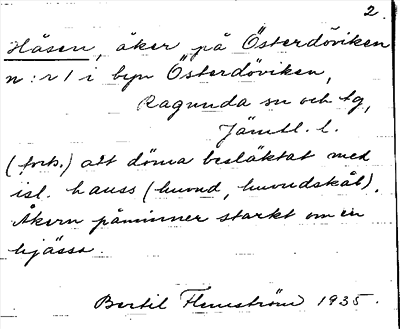 2.
Håsen, åker på Österdöviken
n:r 1 i byn Österdöviken,
Ragunda sn och tg,
Jämtl. l.
(fork.) att döma besläktat med
isl. hauss (huvud, huvudskål).
Åkern påminner starkt om en
hjässa.
Bertil Flemström 1935.